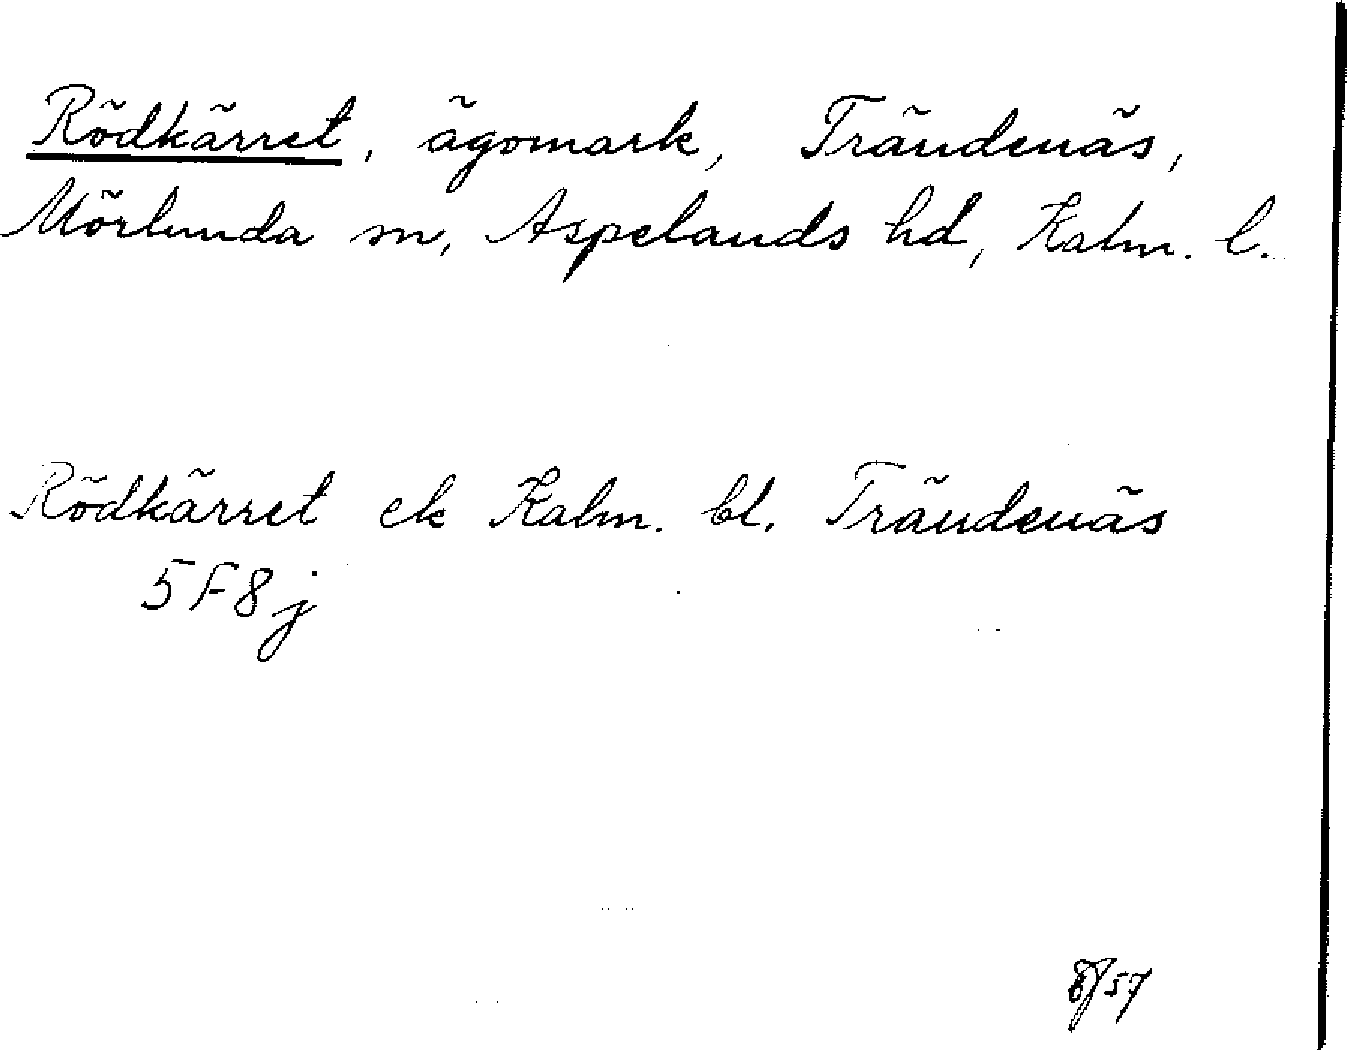 Rödkärret, ägomark, Trändenäs,
Mörlunda sn, Aspelands hd, Kalm. l.
Rödkärret ek Kalm. bl. Trändenäs
5F8j
57